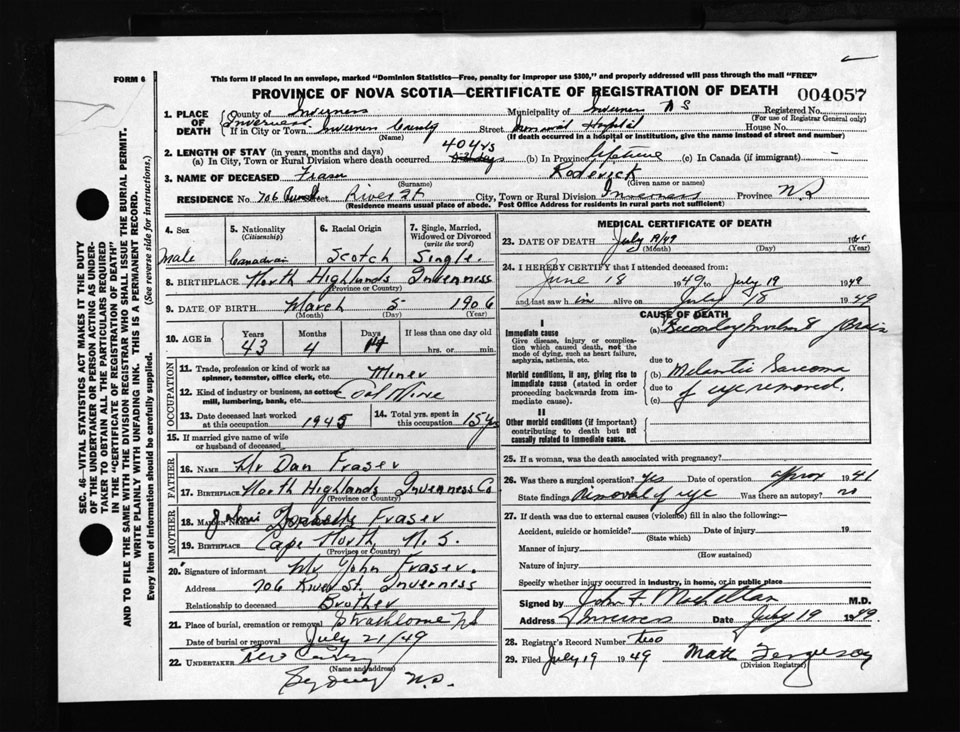 FORM 6
This form if placed in an envelope, marked "Dominion Statistics—Free, penalty for improper use $300," and properly addressed will pass through the mail "FREE"
PROVINCE OF NOVA SCOTIA—CERTIFICATE OF REGISTRATION OF DEATH 004057
1. PLACE OF DEATH County of Inverness Municipality of Inverness N S Registered No.
(For use of Registrar General only)
Inverness If in City or Town Inverness County Street Memorial Hospital House No.
(Name) (If death occurred in a hospital or institution, give the name instead of street and number)
2. LENGTH OF STAY (in years, months and days) 40 yrs
(a) In City, Town or Rural Division where death occurred days (b) In Province lifetime (c) In Canada (if immigrant) -
3. NAME OF DECEASED Fraser Roderick
(Surname) (Given name or names)
RESIDENCE No. 706 Street River St City, Town or Rural Division Inverness Province N S
(Residence means usual place of abode. Post Office Address for residents in rural parts not sufficient)
4. Sex Male
5. Nationality (Citizenship) Canadian
6. Racial Origin Scotch
7. Single, Married, Widowed or Divorced (write the word) Single.
8. BIRTHPLACE North Highlands Inverness
(Province or Country)
9. DATE OF BIRTH March 5 1906
(Month) (Day) (Year)
10. AGE in Years Months Days If less than one day old
43 4 14 hrs. or min.
OCCUPATION
11. Trade, profession or kind of work as spinner, teamster, office clerk, etc. Miner
12. Kind of industry or business, as cotton mill, lumbering, bank, etc. Coal Mine
13. Date deceased last worked at this occupation 1945
14. Total yrs. spent in this occupation 15 yrs
15. If married give name of wife or husband of deceased
FATHER
16. NAME Mr Dan Fraser
17. BIRTHPLACE North Highlands Inverness Co
(Province or Country)
MOTHER
18. MAIDEN NAME Fraser
19. BIRTHPLACE Cape North, N. S.
(Province or Country)
20. Signature of informant Mr John Fraser.
Address 706 River St. Inverness
Relationship to deceased Brother
21. Place of burial, cremation or removal Strathlorne N S
Date of burial or removal July 21/49
22. UNDERTAKER
(Name and address)
Sydney N.S.
MEDICAL CERTIFICATE OF DEATH
23. DATE OF DEATH July 19/49 19
(Month) (Day) (Year)
24. I HEREBY CERTIFY that I attended deceased from:
June 18 1949 to July 19 1949
and last saw him alive on July 18 1949
CAUSE OF DEATH
I
Immediate cause (a) Brain
Give disease, injury or complication which caused death, not the mode of dying, such as heart failure, asphyxia, asthenia, etc.
due to
Morbid conditions, if any, giving rise to immediate cause (stated in order proceeding backwards from immediate cause). (b) Melanotic Sarcoma
due to of eye removed.
(c)
II
Other morbid conditions (if important) contributing to death but not causally related to immediate cause.
25. If a woman, was the death associated with pregnancy?
26. Was there a surgical operation? Yes Date of operation 1941
State findings Removal of eye Was there an autopsy? no
27. If death was due to external causes (violence) fill in also the following:—
Accident, suicide or homicide? Date of injury 19
(State which)
Manner of injury
(How sustained)
Nature of injury
Specify whether injury occurred in industry, in home, or in public place
Signed by John F MacLellan M.D.
Address Inverness Date July 19 1949
28. Registrar's Record Number two
29. Filed July 19 1949 Matt Ferguson
(Division Registrar)
SEC. 46—VITAL STATISTICS ACT MAKES IT THE DUTY
OF THE UNDERTAKER OR PERSON ACTING AS UNDERTAKER
TO OBTAIN ALL THE PARTICULARS REQUIRED
IN THE "CERTIFICATE OF REGISTRATION OF DEATH"
AND TO FILE THE SAME WITH THE DIVISION REGISTRAR WHO SHALL ISSUE THE BURIAL PERMIT.
WRITE PLAINLY WITH UNFADING INK. THIS IS A PERMANENT RECORD.
Every item of information should be carefully supplied. (See reverse side for instructions.)